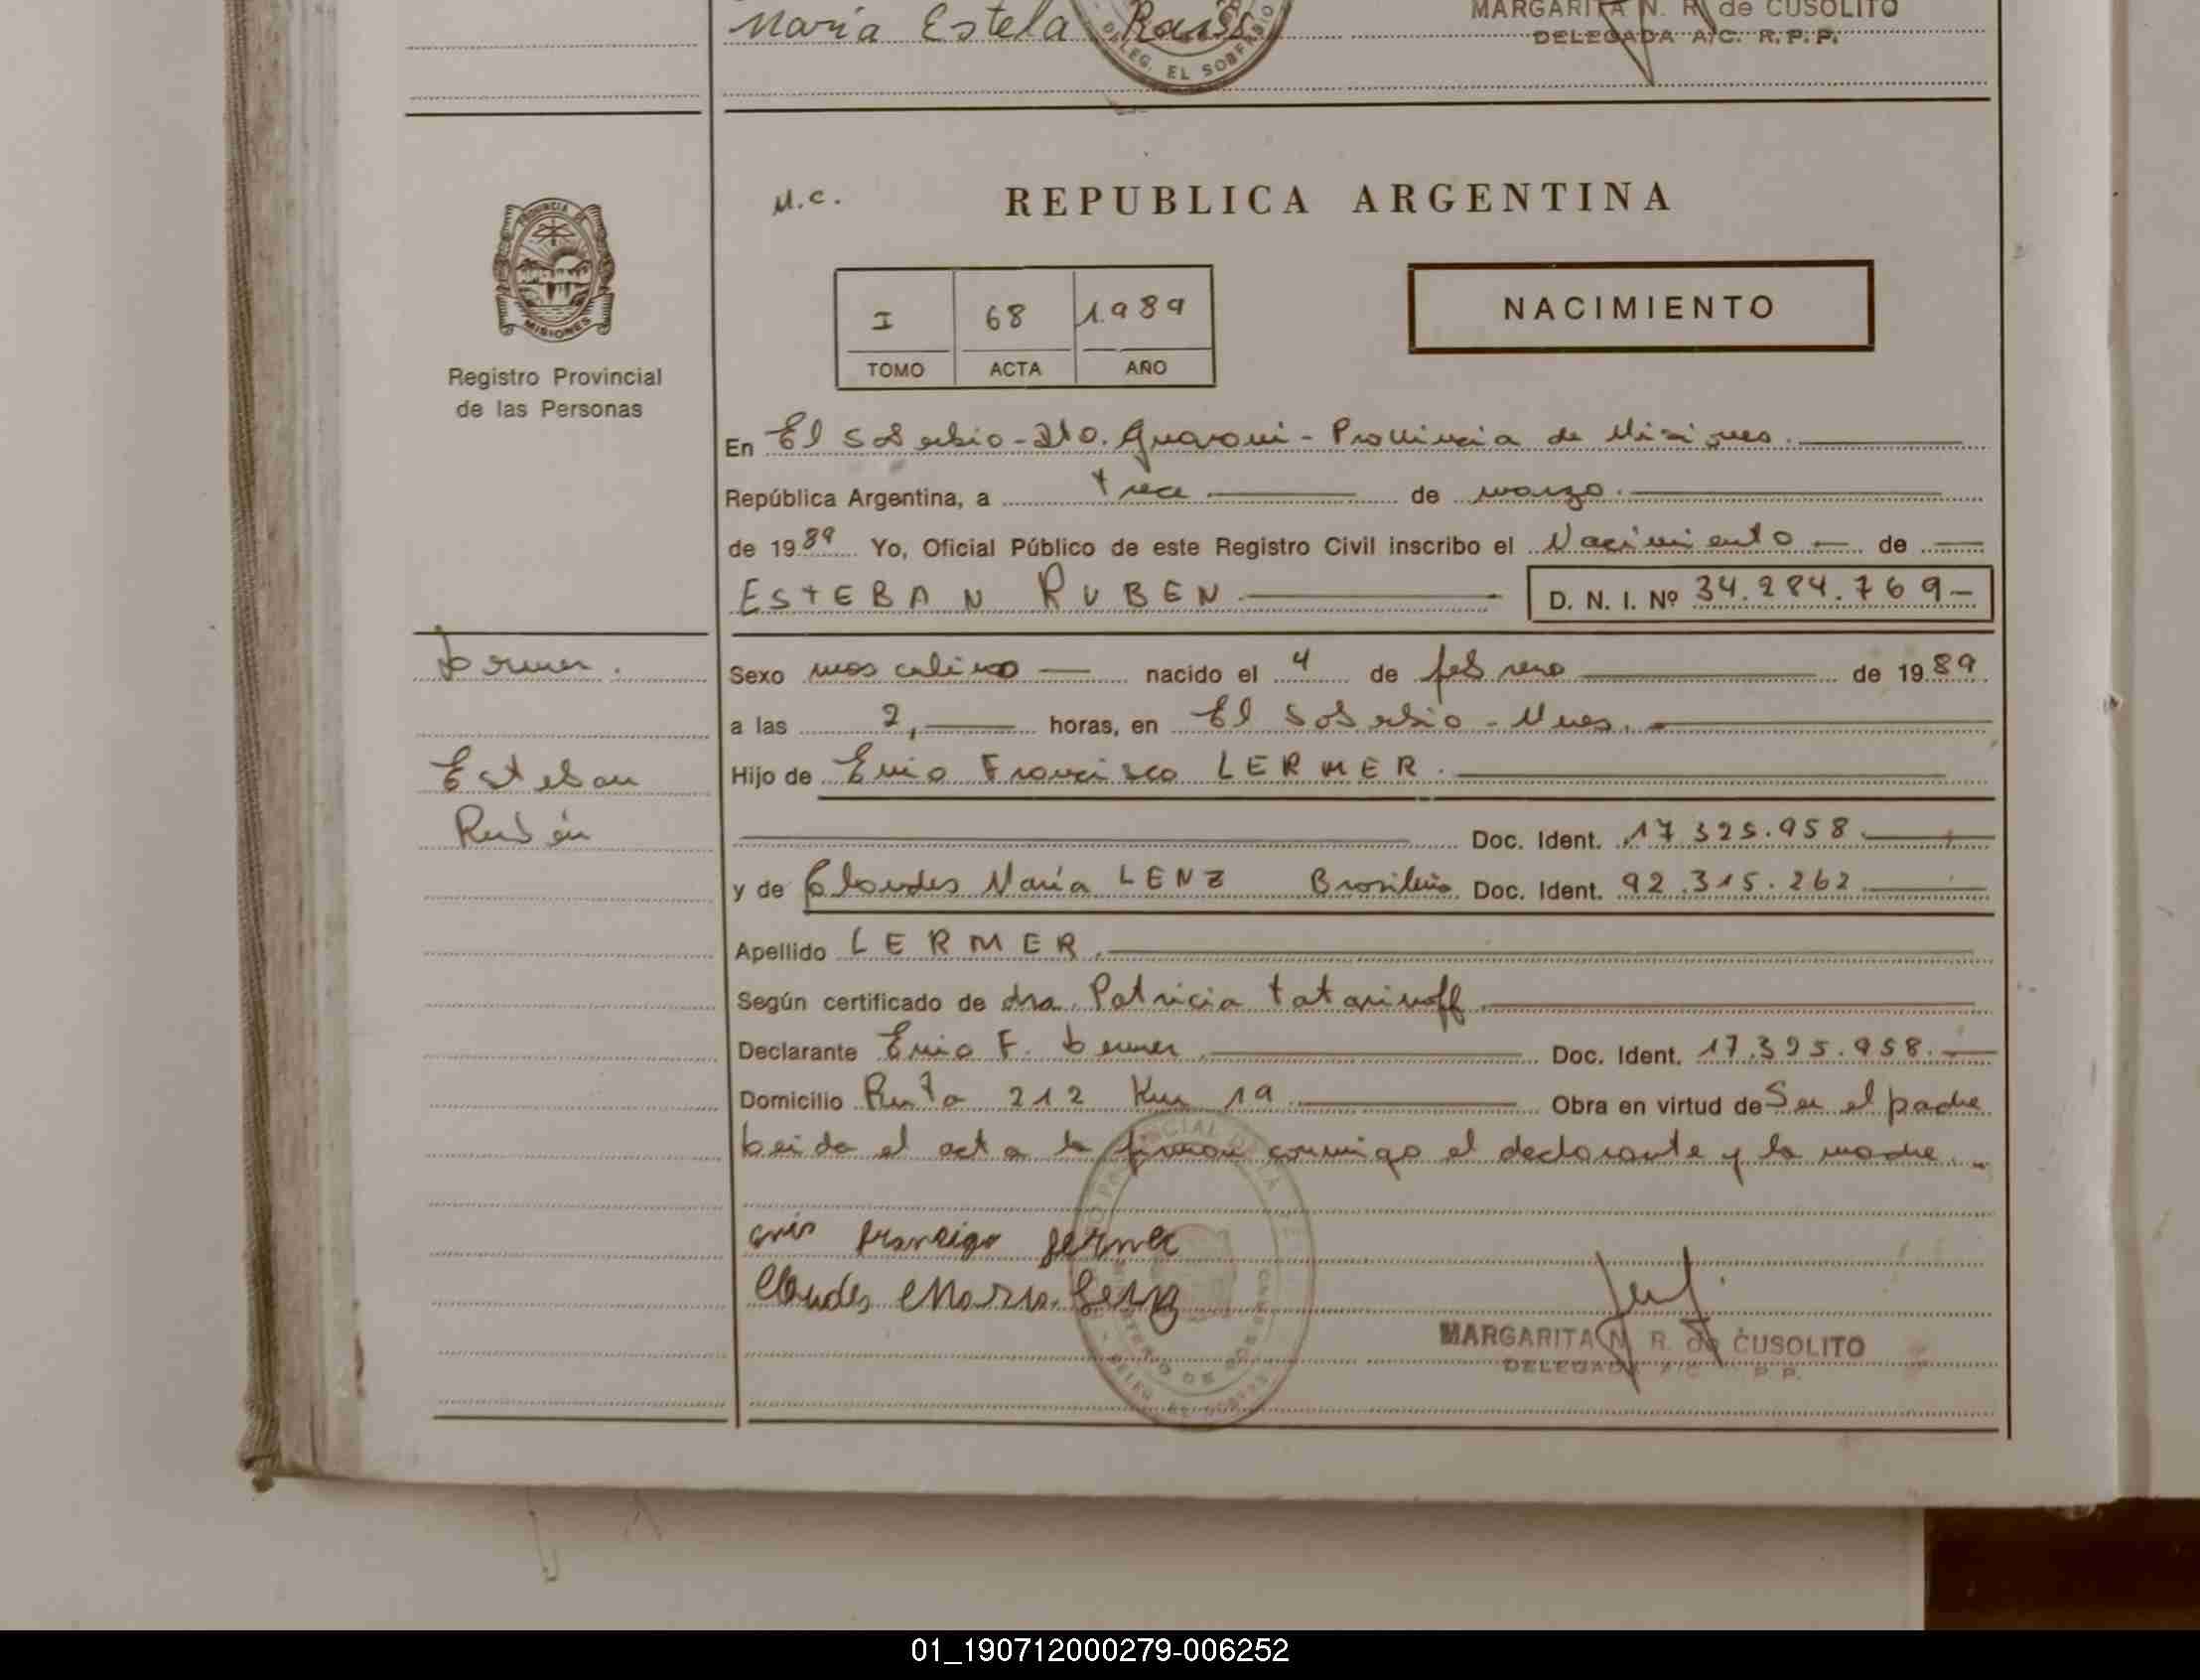 María Estela
MARGARITA N. R. de CUSOLITO
DELEGADA A/C. R.P.P.
DELEG. EL SOBERBIO
M.C.
REPUBLICA ARGENTINA
PROVINCIA DE
MISIONES
Registro Provincial
de las Personas
I 68 1989
TOMO ACTA AÑO
NACIMIENTO
En El Soberbio - Dto. Guaraní - Provincia de Misiones.
República Argentina, a trece de marzo.
de 1989 Yo, Oficial Público de este Registro Civil inscribo el Nacimiento de
ESTEBAN RUBEN D. N. I. Nº 34.284.769-
Lermer.
Esteban
Rubén
Sexo masculino nacido el 4 de febrero de 1989
a las 2, horas, en El Soberbio - Mnes.
Hijo de Enio Francisco LERMER.
Doc. Ident. 17.325.958.
y de Cloudes María LENZ Brasileña Doc. Ident. 92.315.262
Apellido LERMER.
Según certificado de dra. Patricia Tatarinoff
Declarante Enio F. Lermer Doc. Ident. 17.325.958.
Domicilio Ruta 212 Km 19 Obra en virtud de Ser el padre
Leida el acta la firman conmigo el declarante y la madre.
Lermer
Cloudes Maria Lenz
MARGARITA N. R. de CUSOLITO
DELEGADA A/C R.P.P.
01_190712000279-006252